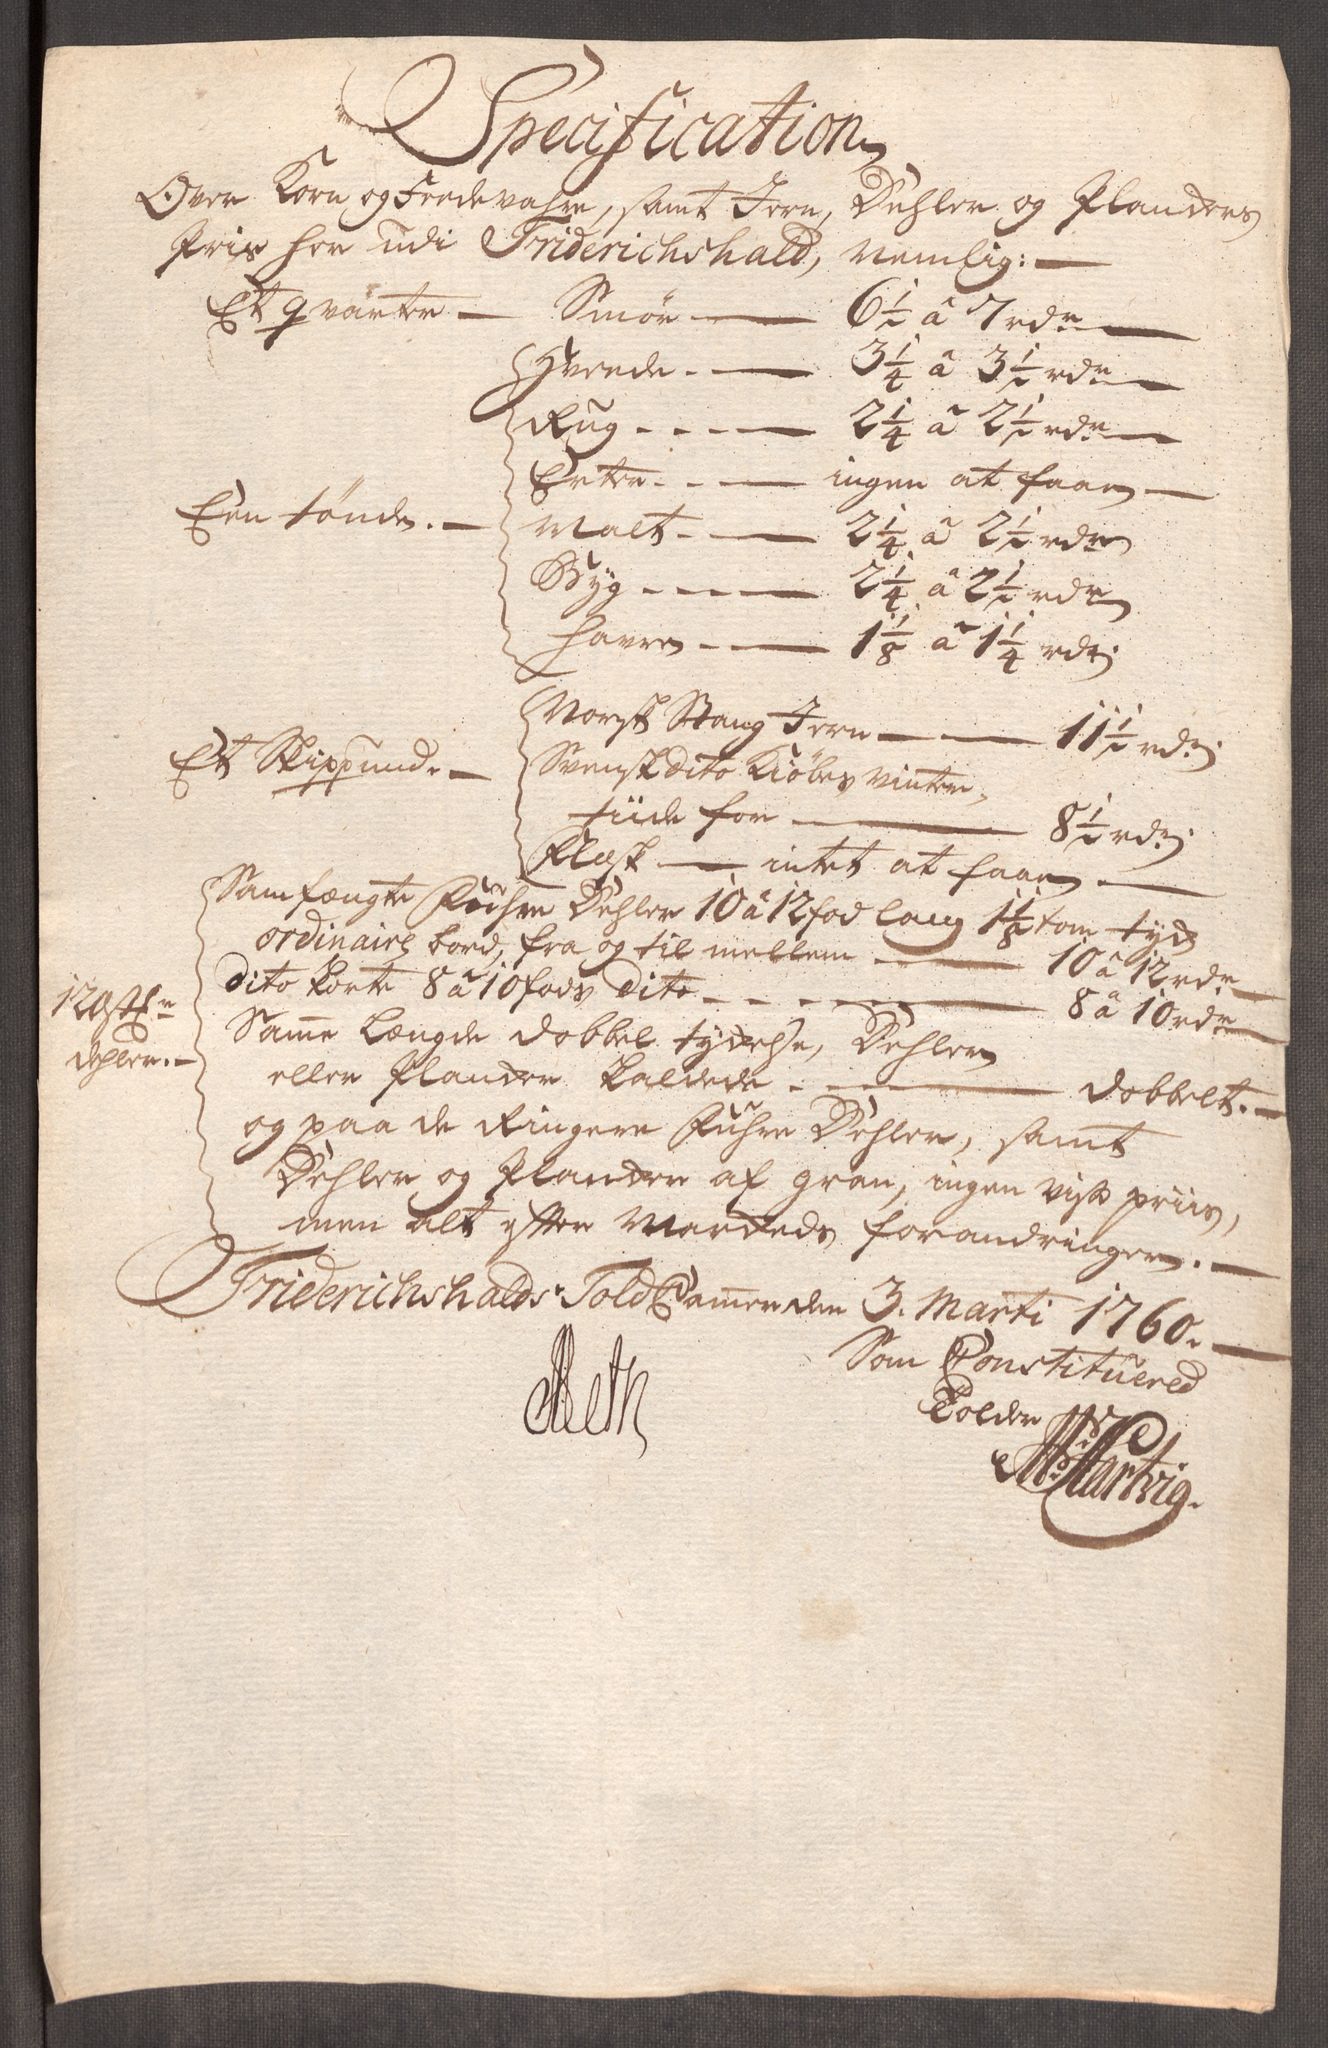 Specification
Over Korn og Feedevahre, samt Jern, Dehler og Planders
Priis her udi Friderichshald, nemlig:
Et qvarter — Smör — 6½ â 7 rdr
Hvede — 3¼ â 3½ rdr
Rug — 2¼ â 2½ rdr
Erter — ingen at faae
Een tönde — Malt — 2¼ â 2½ rdr
Byg — 2¼ â 2½ rdr
Havre — 1⅛ â 1¼ rdr
Norsk Stang Jern — 11½ rdr
Et Skippund — Svensk dito Kiöbes vinter
tiide for — 8½ rdr
Flesk — intet at faae
Samfængte Fuhre Dehler 10 â 12 fod lang 1⅛ tom tyk
ordinaire bord, fra og til mellem — 10 â 12 rdr
dito korte 8 â 10 fods dito — 8 â 10 rdr
12
dehler
Samme Længde dobbel tydelse, Dehler
eller Plander kaldede — dobbelt
og paa de Ringere Fuhre Dehler, samt
Dehler og Plander af gran, ingen viss priis,
men alt efter Markeds forandringer.
Friderichshalds Told Cammer den 3. Marti 1760.
Som Constituered
Tolder
Hartvig.